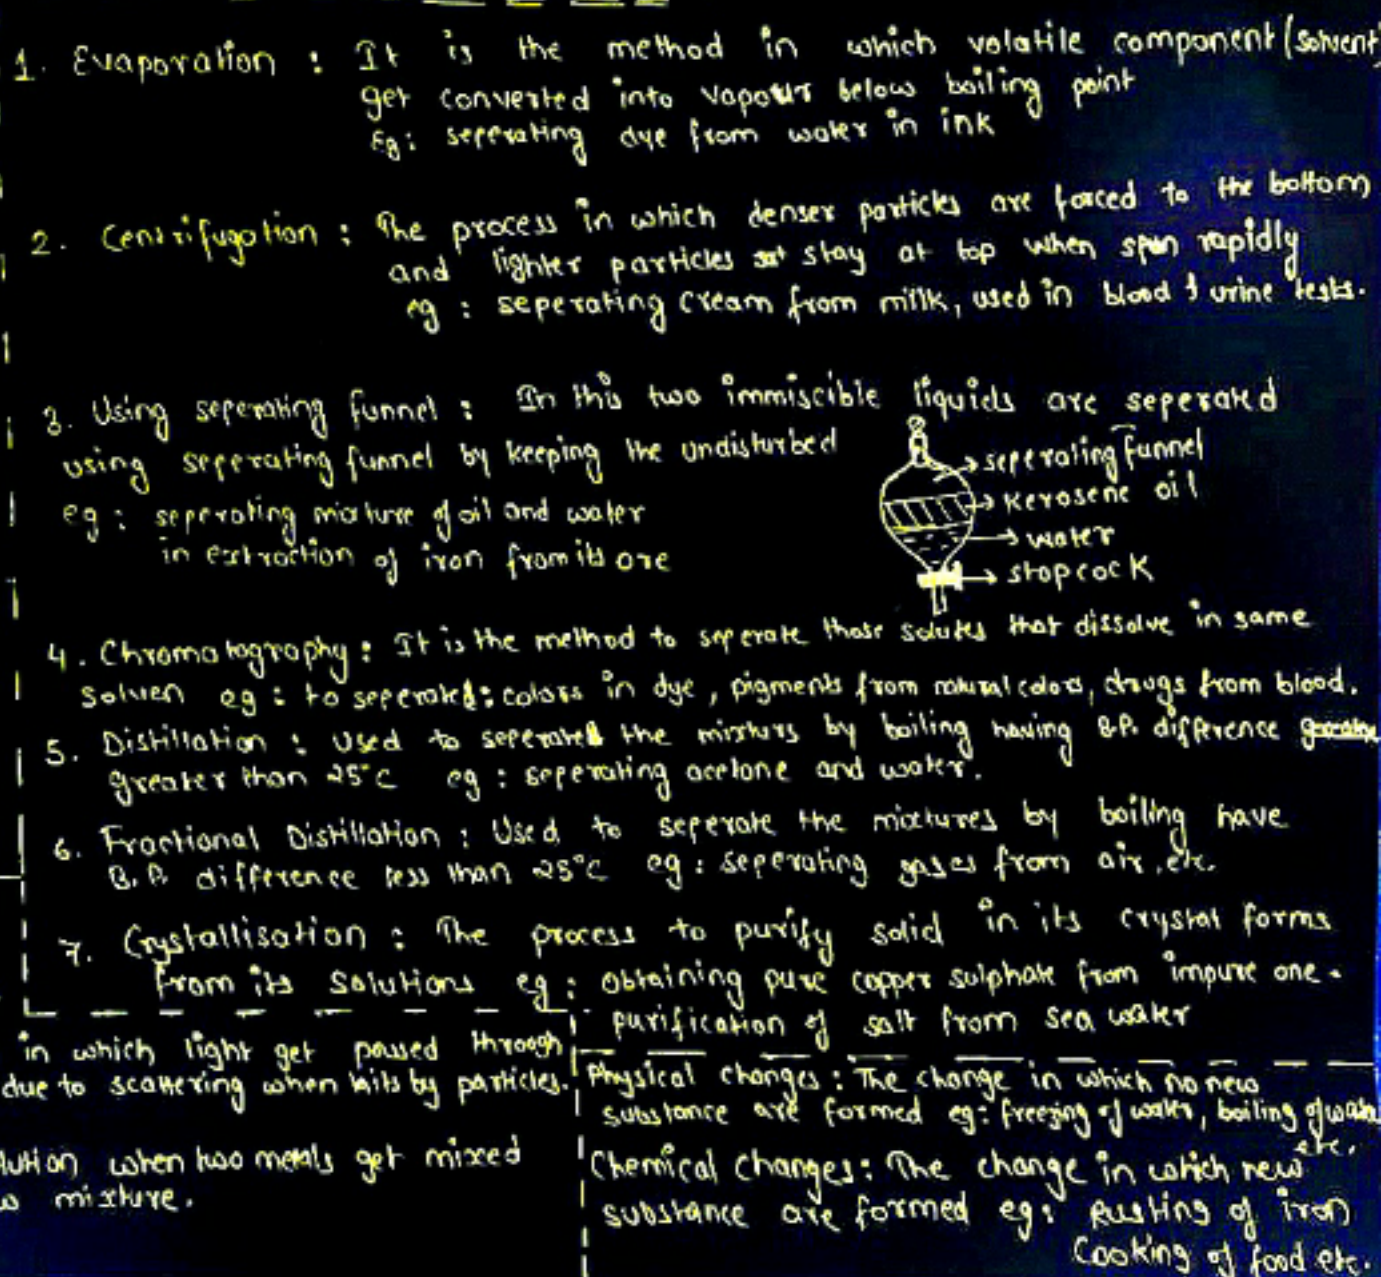 1. Evaporation : It is the method in which volatile component (solvent)
get converted into vapour below boiling point
Eg: seperating dye from water in ink
2. Centrifugation : The process in which denser particles are forced to the bottom
and lighter particles stay at top when spun rapidly
eg : seperating cream from milk, used in blood & urine tests.
3. Using seperating funnel : In this two immiscible liquids are seperated
using seperating funnel by keeping the undisturbed
eg : seperating mixture of oil and water
in extraction of iron from its ore
seperating funnel
Kerosene oil
water
stopcock
4. Chromatography : It is the method to seperate those solutes that dissolve in same
solven eg : to seperated : colors in dye, pigments from natural colors, drugs from blood.
5. Distillation : Used to seperated the mixturs by boiling having B.P. difference
greater than 25°C eg : seperating acetone and water.
6. Fractional Distillation : Used to seperate the mixtures by boiling have
B.P. difference less than 25°C eg : seperating gases from air, etc.
7. Crystallisation : The process to purify solid in its crystal forms
from its solutions eg : obtaining pure copper sulphate from impure one.
purification of salt from sea water
in which light get passed through
due to scattering when hits by particles.
lution when two metals get mixed
mixture.
Physical changes : The change in which no new
substance are formed eg: freezing of water, boiling of water
etc.
Chemical Changes : The change in which new
substance are formed eg: Rusting of iron
Cooking of food etc.